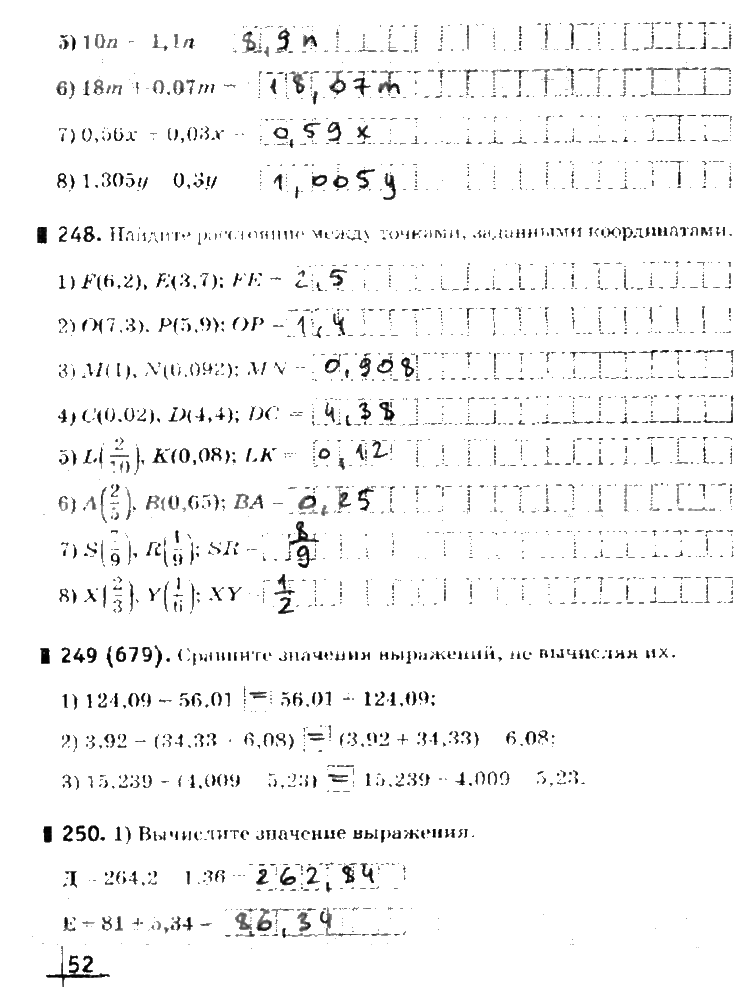 5) 10n - 1,1n 8,9n
6) 18m + 0,07m = 18,07m
7) 0,56x + 0,03x = 0,59x
8) 1,305y 0,3y 1,005y
248. Найдите расстояние между точками, заданными координатами.
1) F(6,2), E(3,7); FE = 2,5
2) O(7,3), P(5,9); OP = 1,4
3) M(1), N(0,092); MN = 0,908
4) C(0,02), D(4,4); DC = 4,38
5) L(2/10), K(0,08); LK = 0,12
6) A(2/5), B(0,65); BA = 0,25
7) S(7/9), R(1/9); SR = 8/9
8) X(2/3), Y(1/6); XY = 1/2
249 (679). Сравните значения выражений, не вычисляя их.
1) 124,09 + 56,01 = 56,01 + 124,09;
2) 3,92 + (34,33 + 6,08) = (3,92 + 34,33) 6,08;
3) 15,239 - (4,009 5,23) = 15,239 - 4,009 5,23.
250. 1) Вычислите значение выражения.
Д = 264,2 1,36 = 262,84
Е = 81 + 5,34 = 86,34
52